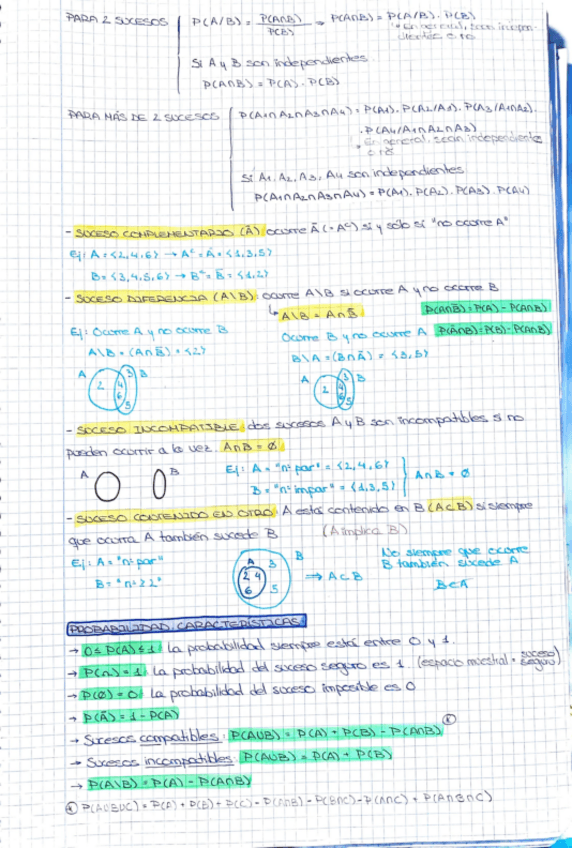 PARA 2 SUCESOS
P(A/B) = P(A∩B) / P(B) → P(A∩B) = P(A/B) . P(B)
* En general, sean indepen-
dientes o no
Si A y B son independientes
P(A∩B) = P(A) . P(B)
PARA MÁS DE 2 SUCESOS
P(A1∩A2∩A3∩A4) = P(A1) . P(A2/A1) . P(A3/A1∩A2) .
. P(A4/A1∩A2∩A3)
* En general, sean independientes
Si A1, A2, A3, A4 son independientes
P(A1∩A2∩A3∩A4) = P(A1) . P(A2) . P(A3) . P(A4)
- SUCESO COMPLEMENTARIO (Ā) ocurre Ā (= Aᶜ) si y sólo si "no ocurre A"
Ej: A = {2,4,6} → Aᶜ = Ā = {1,3,5}
B = {3,4,5,6} → Bᶜ = B̄ = {1,2}
- SUCESO DIFERENCIA (A\B) ocurre A\B si ocurre A y no ocurre B
↳ A\B = A∩B̄
P(A∩B̄) = P(A) - P(A∩B)
Ej: Ocurre A y no ocurre B
Ocurre B y no ocurre A
P(Ā∩B) = P(B) - P(A∩B)
A\B = (A∩B̄) = {2}
B\A = (B∩Ā) = {3,5}
A 2 4 6 3 5 B
A 2 4 6 3 5 B
- SUCESO INCOMPATIBLE: dos sucesos A y B son incompatibles si no
pueden ocurrir a la vez. A∩B = ∅
A B
Ej: A = "nº par" = {2,4,6}
B = "nº impar" = {1,3,5}
A∩B = ∅
- SUCESO CONTENIDO EN OTRO: A está contenido en B (A⊂B) si siempre
que ocurra A también sucede B (A implica B)
Ej: A = "nº par"
B = "nº ≥ 2"
A 2 4 6 3 5 B
⇒ A⊂B
No siempre que ocurre
B también sucede A
B⊄A
PROBABILIDAD. CARACTERÍSTICAS
→ 0 ≤ P(A) ≤ 1: La probabilidad siempre está entre 0 y 1.
→ P(Ω) = 1: La probabilidad del suceso seguro es 1. (espacio muestral = suceso seguro)
→ P(∅) = 0: La probabilidad del suceso imposible es 0
→ P(Ā) = 1 - P(A)
→ Sucesos compatibles: P(A∪B) = P(A) + P(B) - P(A∩B)
→ Sucesos incompatibles: P(A∪B) = P(A) + P(B)
→ P(A\B) = P(A) - P(A∩B)
P(A∪B∪C) = P(A) + P(B) + P(C) - P(A∩B) - P(B∩C) - P(A∩C) + P(A∩B∩C)